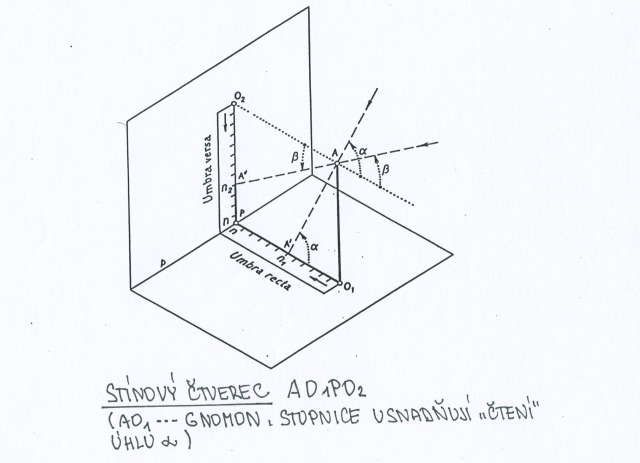 O₂
Umbra versa
β
A
α
β
A'
n₂
n
P
n
A'
n₁
α
Umbra recta
O₁
P
STÍNOVÝ ČTVEREC AO₁PO₂
(AO₁ --- GNOMON, STUPNICE USNADŇUJÍ „ČTENÍ"
ÚHLU α)